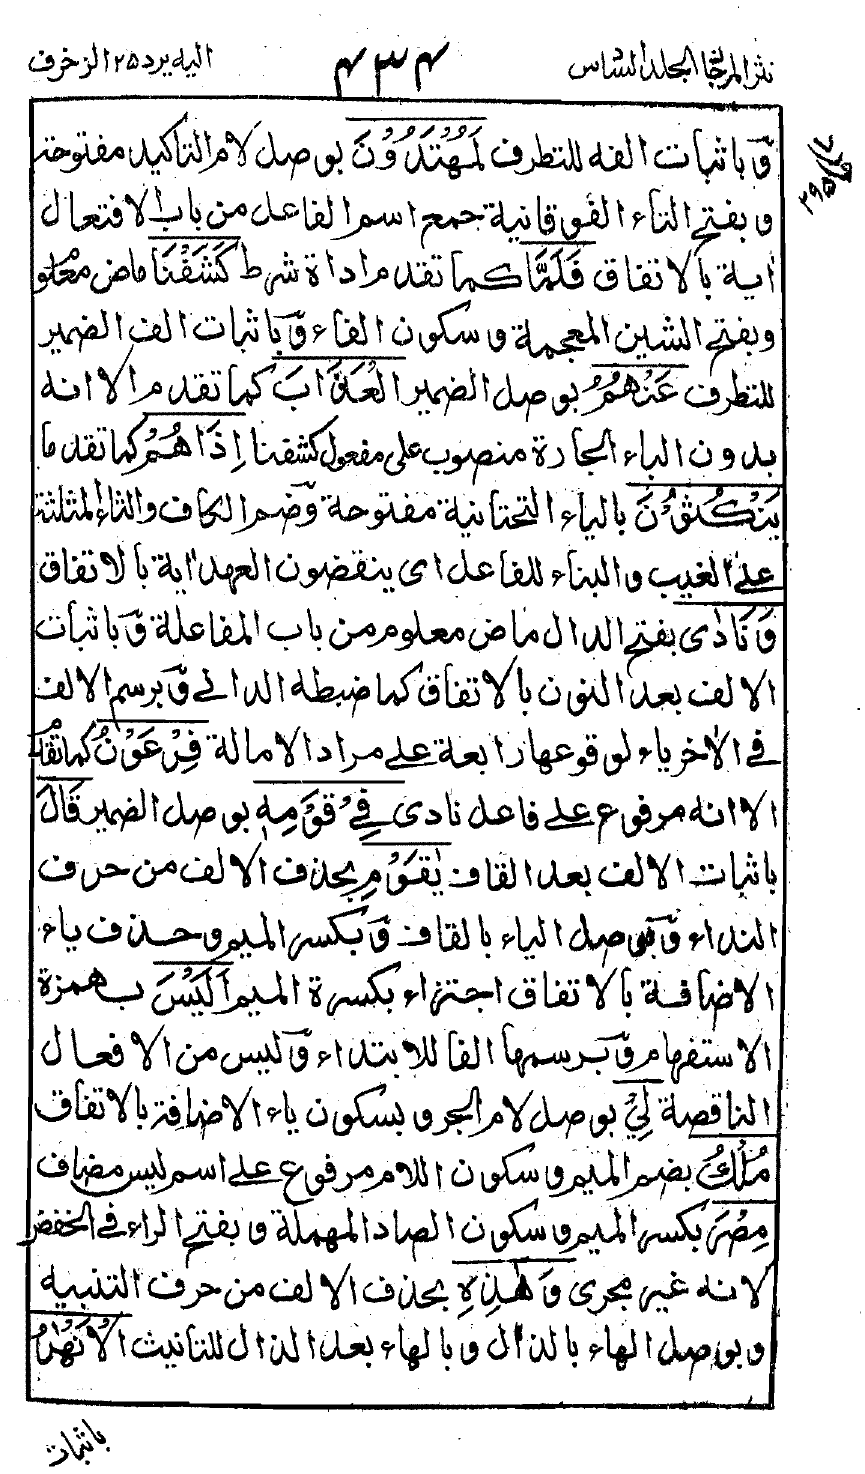 نثر المرجان الجلد السادس ٤٣٤ اليه يرد ٢٥ الزخرف
وَّباثبات الفه للتطرف لَمُهْتَدُوْنَ بوصل لام التاكيد مفتوحة
و بفتح التاء الفوقانية جمع اسم الفاعل من باب الافتعال
اٰية بالاتفاق فَلَمَّا كما تقدم اداة شرط كَشَفْنَا ماض معلوم
وبفتح الشين المعجمة وسكون الفاء وَّباثبات الف الضمير
للتطرف عَنْهُمُ بوصل الضمير الْعَذَابَ كما تقدم الا انه
بدون الباء الجارة منصوب على مفعول كشفنا اِذَا هُمْ كما تقدما
يَنْكُثُوْنَ بالياء التحتانية مفتوحة وَّضم الكاف والثاء المثلثة
على الغيب والبناء للفاعل اى ينقضون العهد اٰية بالاتفاق
وَنَادٰى بفتح الدال ماض معلوم من باب المفاعلة وَّباثبات
الالف بعد النون بالاتفاق كما ضبطه الدانى وَّبرسم الالف
فى الاٰخر ياء لوقوعها رابعة على مراد الامالة فِرْعَوْنُ كما تقدم
الا انه مرفوع على فاعل نادى فِىْ قَوْمِهٖ بوصل الضمير قَالَ
باثبات الالف بعد القاف يٰقَوْمِ بحذف الالف من حرف
النداء وَّبوصل الياء بالقاف وَّبكسر الميم وحذف ياء
الاضافة بالاتفاق اجتزاء بكسرة الميم اَلَيْسَ بهمزة
الاستفهام وَّبرسمها الفا للابتداء وَّليس من الافعال
الناقصة لِىْ بوصل لام الجر وبسكون ياء الاضافة بالاتفاق
مُلْكُ بضم الميم وسكون اللام مرفوع على اسم ليس مضاف
مِصْرَ بكسر الميم وسكون الصاد المهملة وبفتح الراء فى الخفض
لانه غير مجرى وَهٰذِهِ بحذف الالف من حرف التنبيه
وبوصل الهاء بالذال وبالهاء بعد الذال للتانيث الْاَنْهٰرُ
باثبات